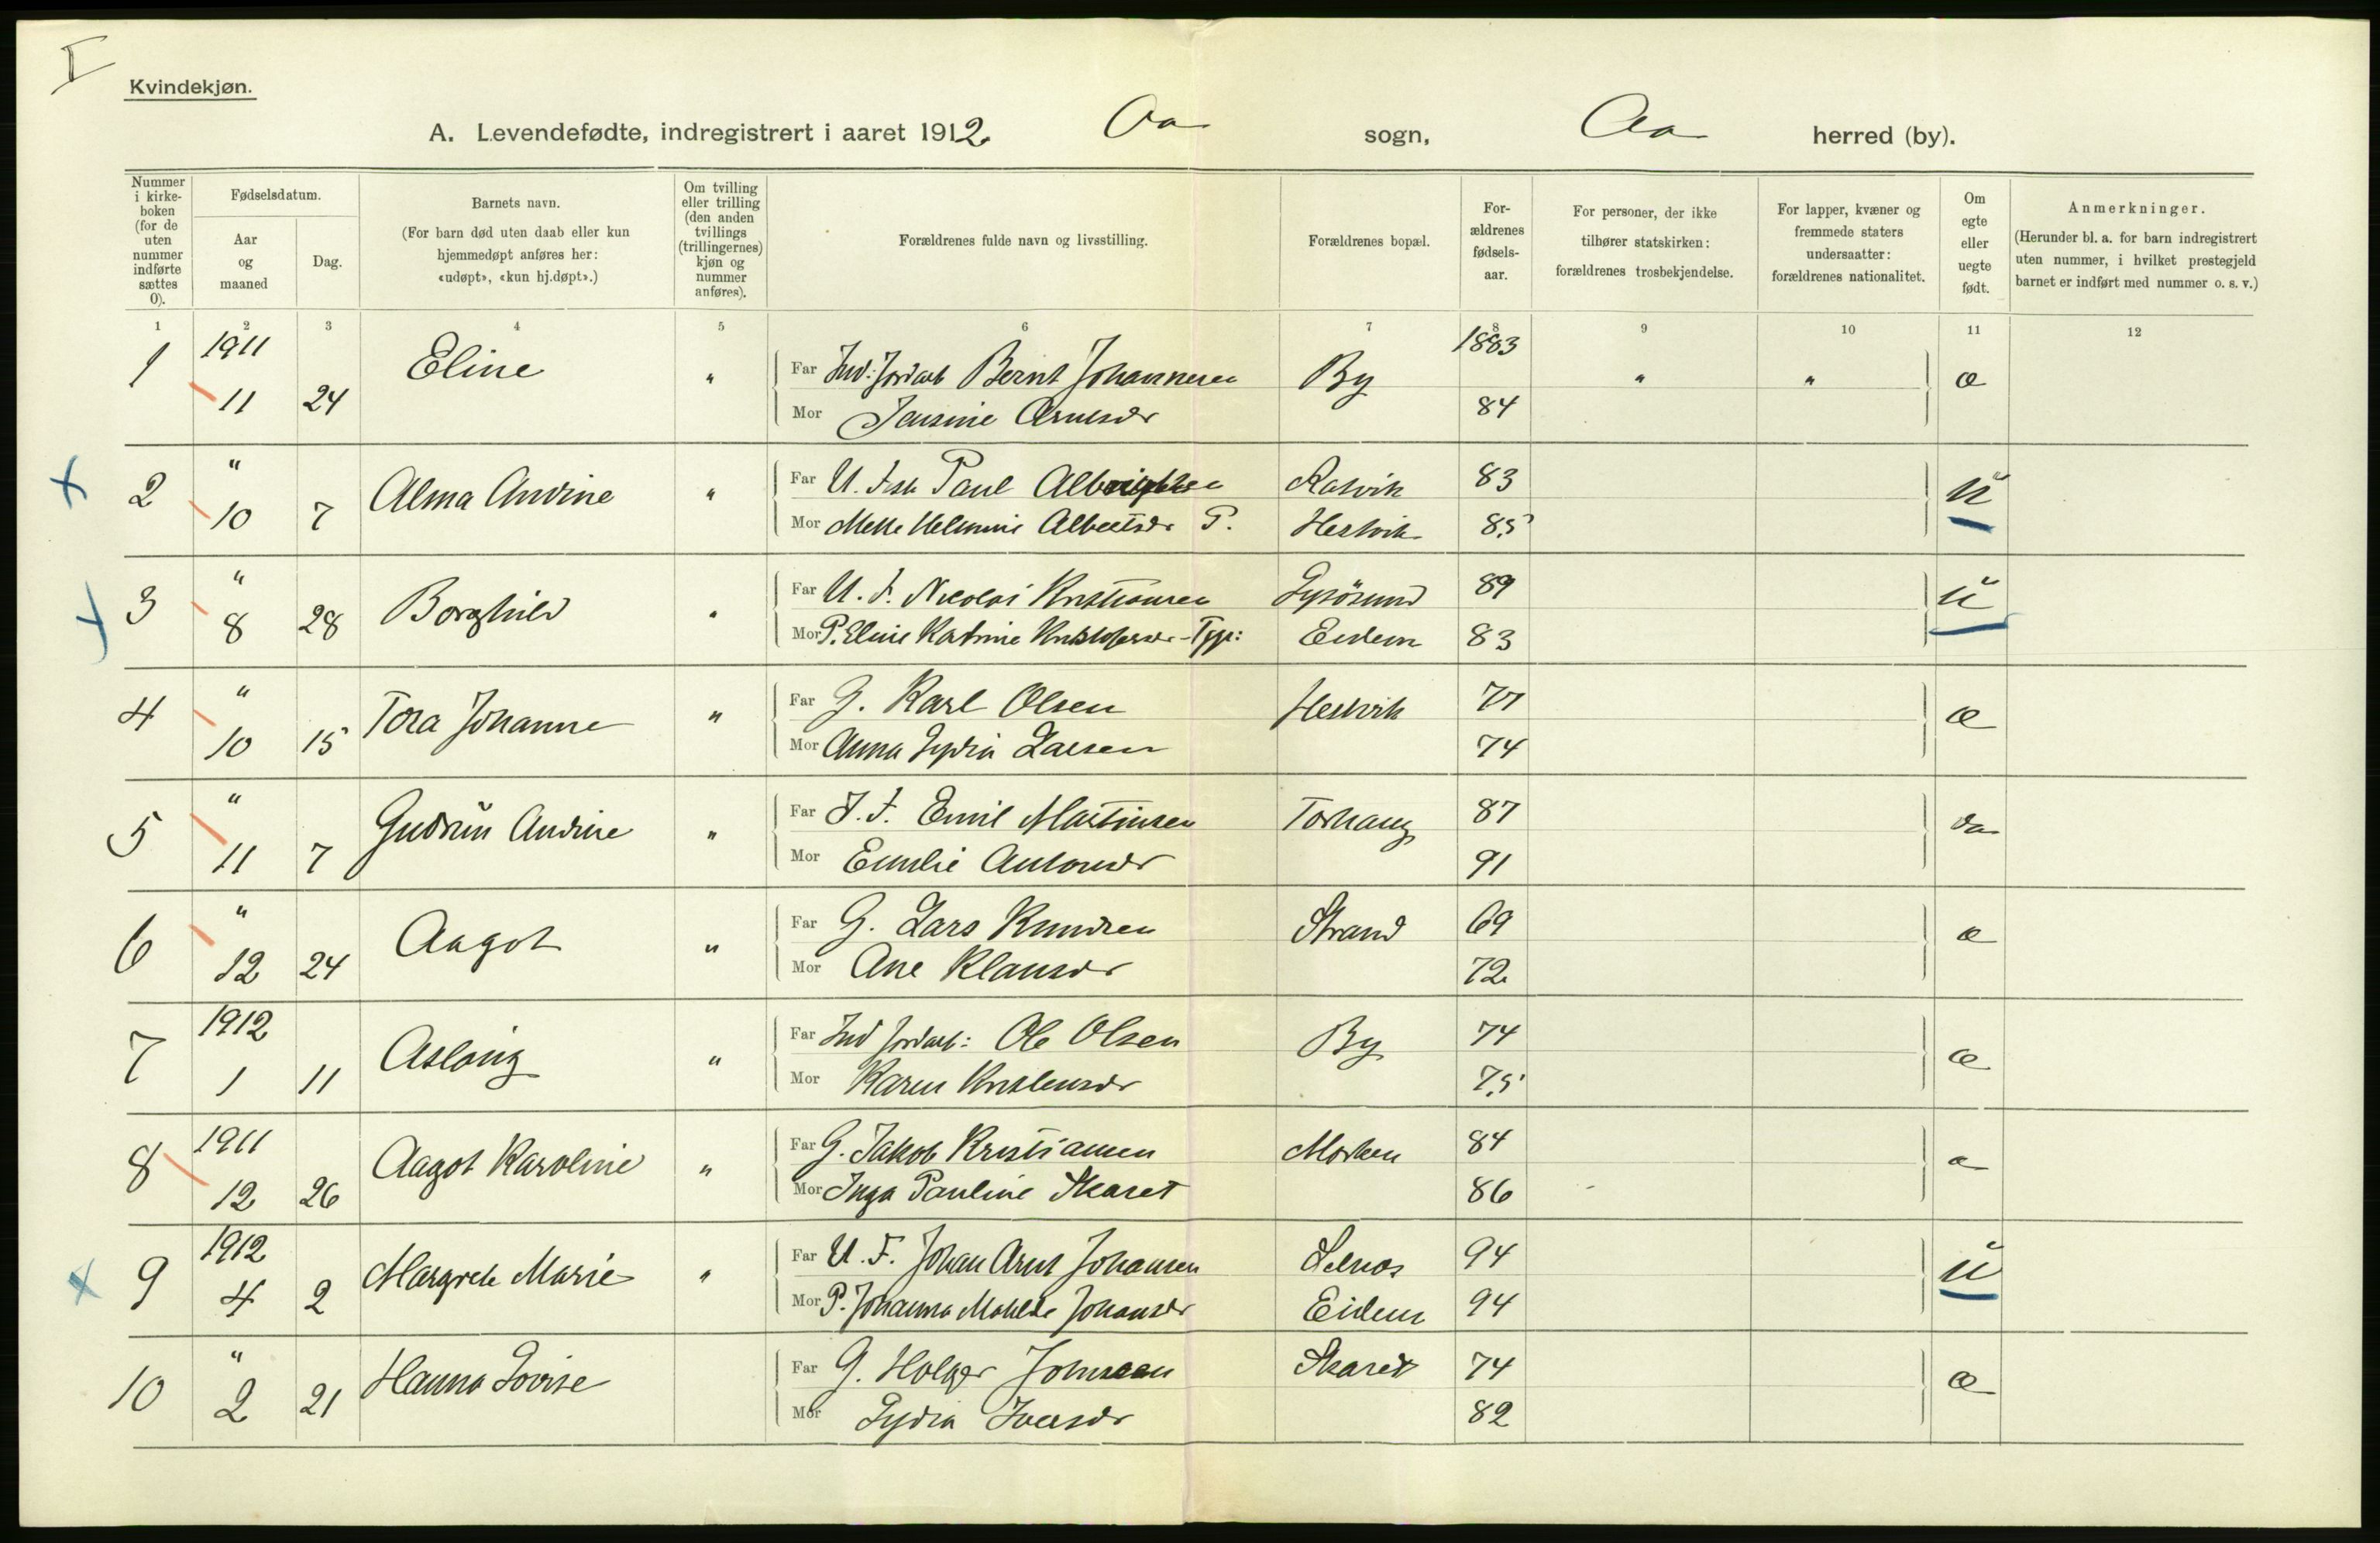 I
Kvindekjøn.
A. Levendefødte, indregistrert i aaret 1912 Aa sogn, Aa herred (by).
Nummer i kirke-boken (for de uten nummer indførte sættes 0).
Fødselsdatum.
Aar og maaned
Dag.
Barnets navn.
(For barn død uten daab eller kun hjemmedøpt anføres her: «udøpt», «kun hj.døpt».)
Om tvilling eller trilling (den anden tvillings (trillingernes) kjøn og nummer anføres).
Forældrenes fulde navn og livsstilling.
Forældrenes bopæl.
For-ældrenes fødsels-aar.
For personer, der ikke tilhører statskirken: forældrenes trosbekjendelse.
For lapper, kvæner og fremmede staters undersaatter: forældrenes nationalitet.
Om egte eller uegte født.
Anmerkninger.
(Herunder bl. a. for barn indregistrert uten nummer, i hvilket prestegjeld barnet er indført med nummer o. s. v.)
1 2 3 4 5 6 7 8 9 10 11 12
1 1911 11 24 Eline " Far Ind: Jordarb Bernt Johannesen By 1883 " " æ
Mor Jensine Arntsdr 84
2 " 10 7 Alma Andrine " Far U. Fisk Paul Albrigtsen Ratvik 83 ü
Mor Mette Helmine Albertsdr P. Hestvik 85
3 " 8 28 Borghild " Far U. F. Nicolai Kristiansen Lysösund 89 ü
Mor P. Eline Katrine Kristofersdr Eidem 83
4 " 10 15 Tora Johanne " Far G. Karl Olsen Hestvik 77 æ
Mor Anna Lydia Larsen 74
5 " 11 7 Gudrün Andrine " Far J. F. Emil Martinsen Torhaug 87 da
Mor Emilie Antonsdr 91
6 " 12 24 Aagot " Far G. Lars Knudsen Strand 69 æ
Mor Ane Klausdr 72
7 1912 1 11 Aslaug " Far Ind Jordarb: Ole Olsen By 74 æ
Mor Karen Kristensdr 75
8 1911 12 26 Aagot Karoline " Far G. Jakob Kristiansen Morken 84 æ
Mor Inga Pauline Skaret 86
9 1912 4 2 Margrete Marie " Far U. F. Johan Arnt Johansen Selnos 94 ü
Mor P. Johanna Matilde Johansdr Eidem 94
10 " 2 21 Hanna Lovise Far G. Holger Johnsen Skaret 74 æ
Mor Lydia Iversdr 82